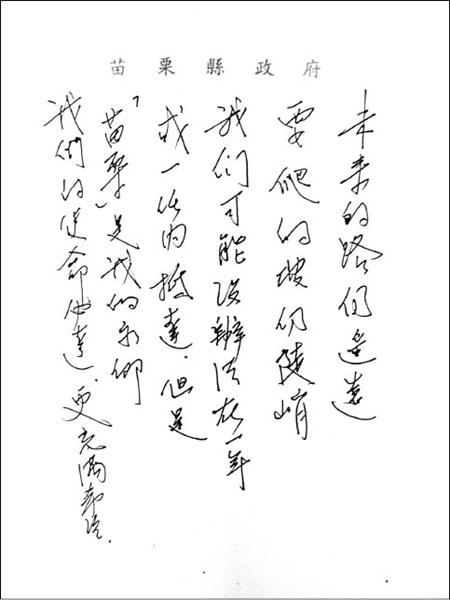 苗栗縣政府
未来的路仍遙遠
要爬的坡仍陡峭
我们可能沒辦法在一年
或一任內抵達.但是
「苗栗」是我的
我們的使命必達.更充滿希望.